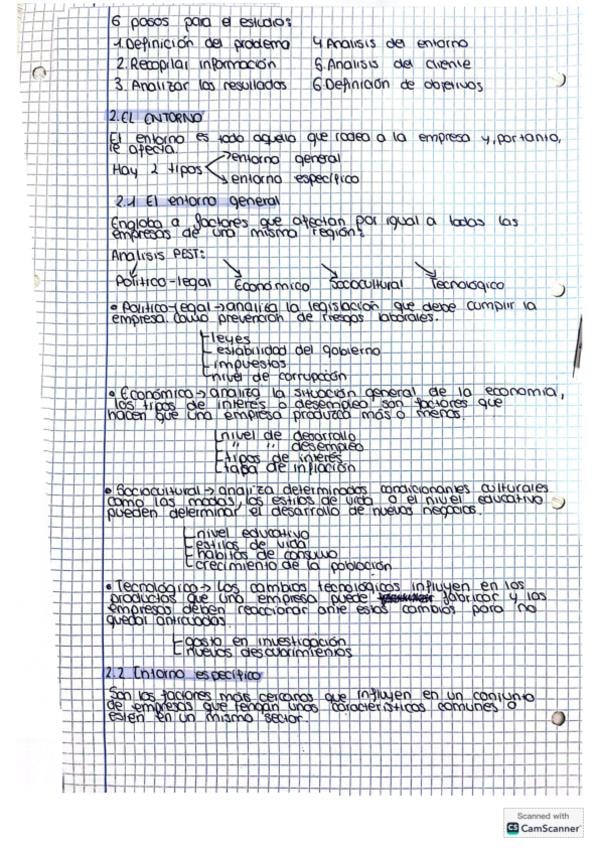 6 pasos para el estudio:
1. Definición del problema 4 Analisis del entorno
2. Recopilar información 5. Analisis del cliente
3. Analizar los resultados 6. Definición de objetivos
2. EL ENTORNO
El entorno es todo aquello que rodea a la empresa y, por tanto,
le afecta.
Hay 2 tipos entorno general
entorno específico
2.1 El entorno general
Engloba a factores que afectan por igual a todas las
empresas de una misma región:
Analisis PEST:
Político-legal Económico Sociocultural Tecnológico
• Político-legal → analiza la legislación que debe cumplir la
empresa. Como prevención de riesgos laborales.
leyes
estabilidad del gobierno
impuestos
nivel de corrupción
• Económico → analiza la situación general de la economía,
los tipos de interés o desempleo son factores que
hacen que una empresa produzca más o menos.
nivel de desarrollo
" " desempleo
tipos de interés
tasa de inflación
• Sociocultural → analiza determinados condicionantes culturales
como las modas, los estilos de vida o el nivel educativo
pueden determinar el desarrollo de nuevos negocios.
nivel educativo
estilos de vida
habitos de consumo
crecimiento de la población
• Tecnológico → Los cambios tecnológicos influyen en los
productos que una empresa puede fabricar y las
empresas deben reaccionar ante estos cambios para no
quedar anticuadas.
gasto en investigación
nuevos descubrimientos
2.2 Entorno específico
Son los factores más cercanos que influyen en un conjunto
de empresas que tengan unas características comunes o
estén en un mismo sector.
Scanned with
CS CamScanner